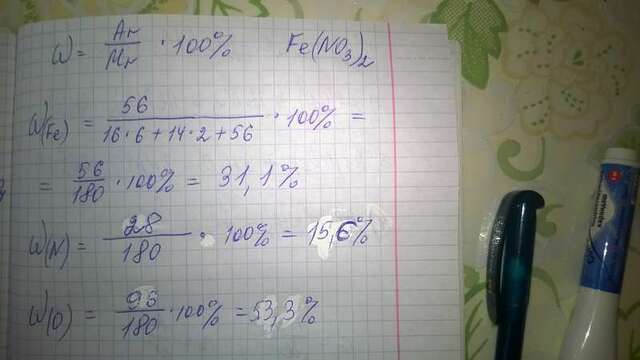 ω = Ar/Mr · 100% Fe(NO3)2
ω(Fe) = 56/(16·6+14·2+56) · 100% =
= 56/180 · 100% = 31,1%
ω(N) = 28/180 · 100% = 15,6%
ω(O) = 96/180 · 100% = 53,3%